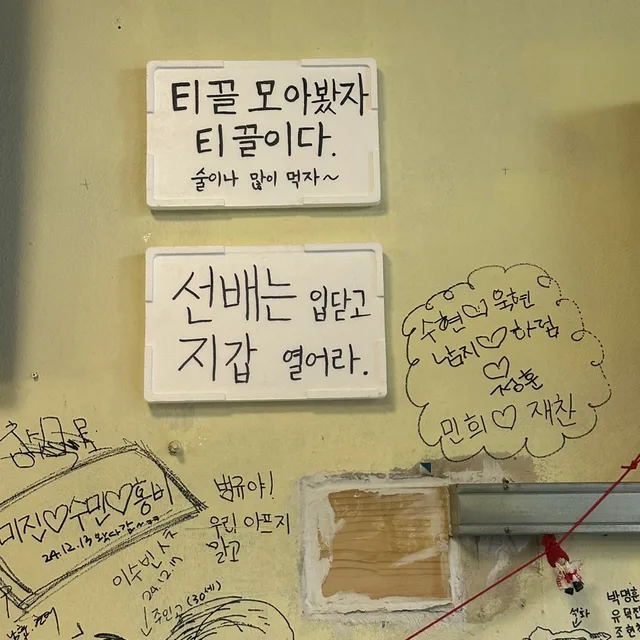 티끌 모아봤자
티끌이다.
술이나 많이 먹자~
선배는 입닫고
지갑 열어라.
수현♡욱현
남지♡하덤
♡
성훈
민희♡재찬
미진♡수민♡홍비
24.12.13 왔다감~ㅋㅋ
범규야!
우린 아프지
말고
이수빈
24.12.17
주인고 (30세)
선화
박명훈